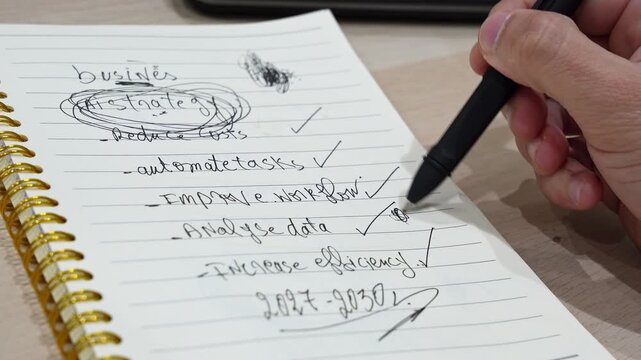 business
AI strategy
- Reduce costs ✓
- automate tasks ✓
- Improve workflow ✓
- Analyse data ✓
- Increase efficiency ✓
2027-2030